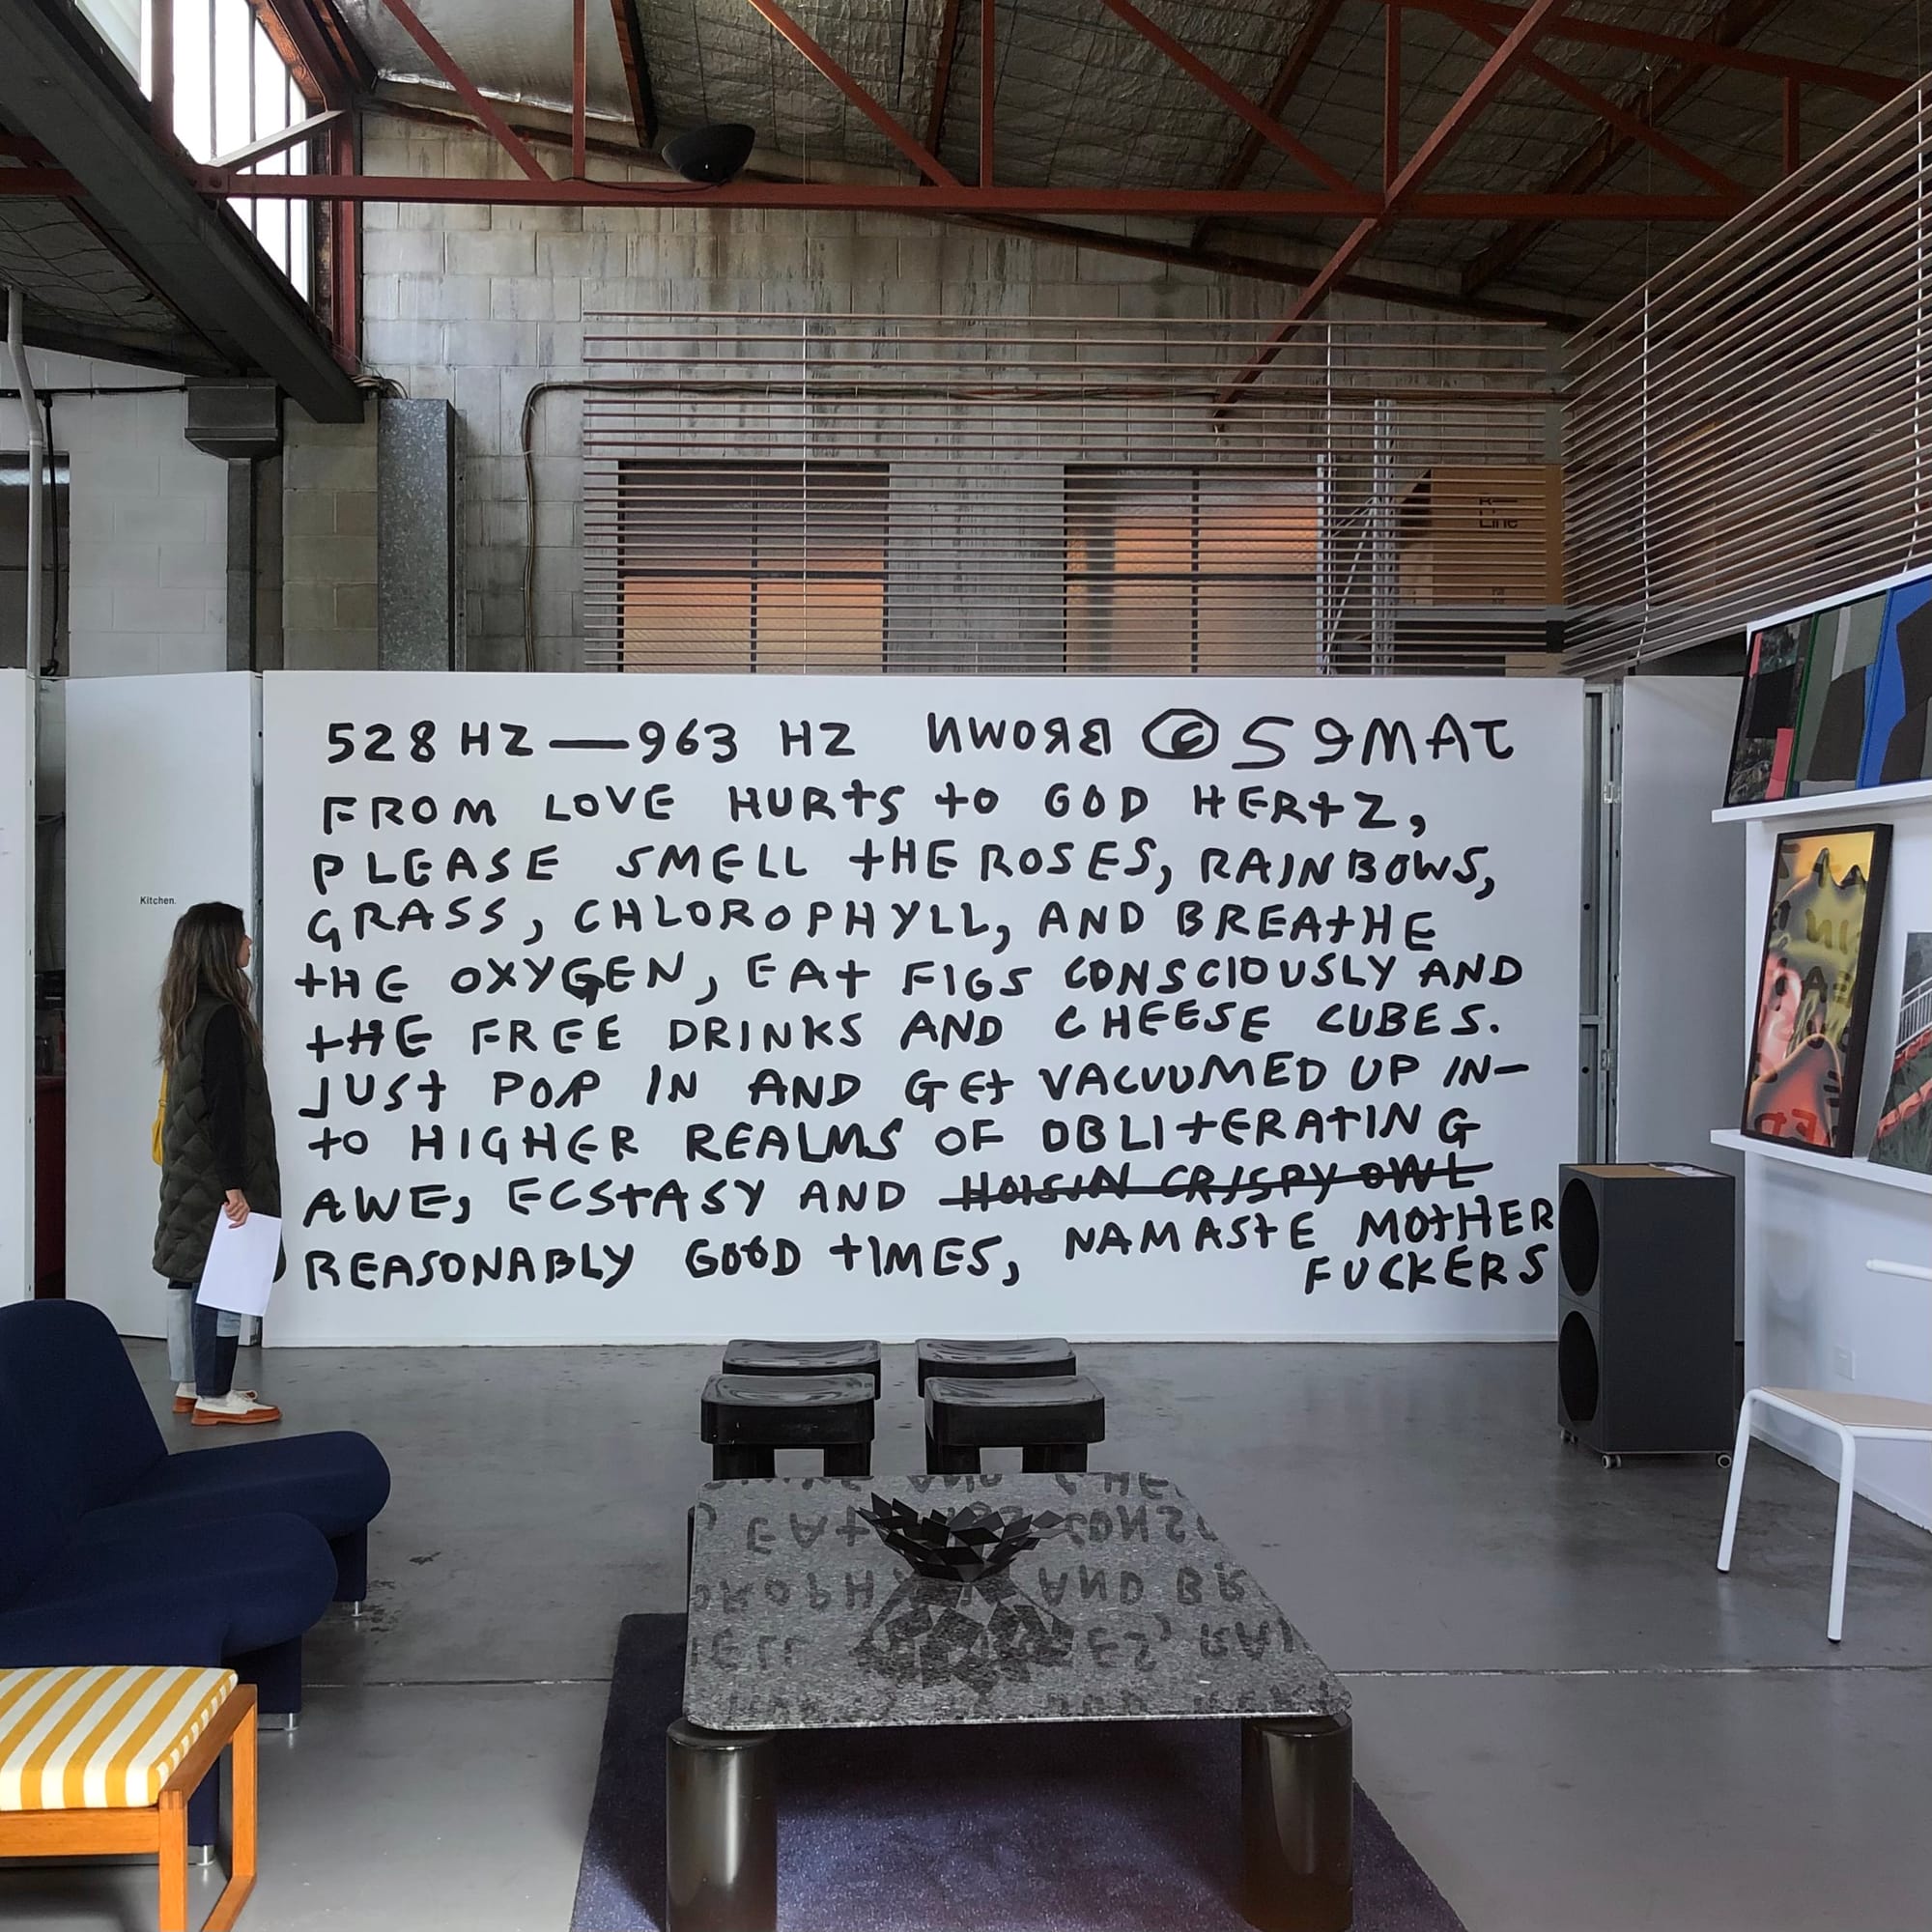 528 HZ — 963 HZ BROWN © S9MAT
FROM LOVE HURTS TO GOD HERTZ,
PLEASE SMELL THE ROSES, RAINBOWS,
GRASS, CHLOROPHYLL, AND BREATHE
THE OXYGEN, EAT FIGS CONSCIOUSLY AND
THE FREE DRINKS AND CHEESE CUBES.
JUST POP IN AND GET VACUUMED UP IN-
TO HIGHER REALMS OF OBLITERATING
AWE, ECSTASY AND HOISIN CRISPY OWL
REASONABLY GOOD TIMES, NAMASTE MOTHER
FUCKERS
Kitchen.